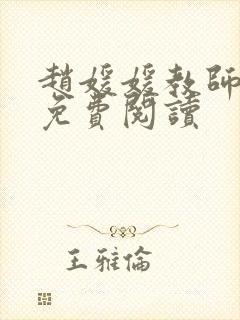 趙媛媛教師
免費閱讀
王雅倫